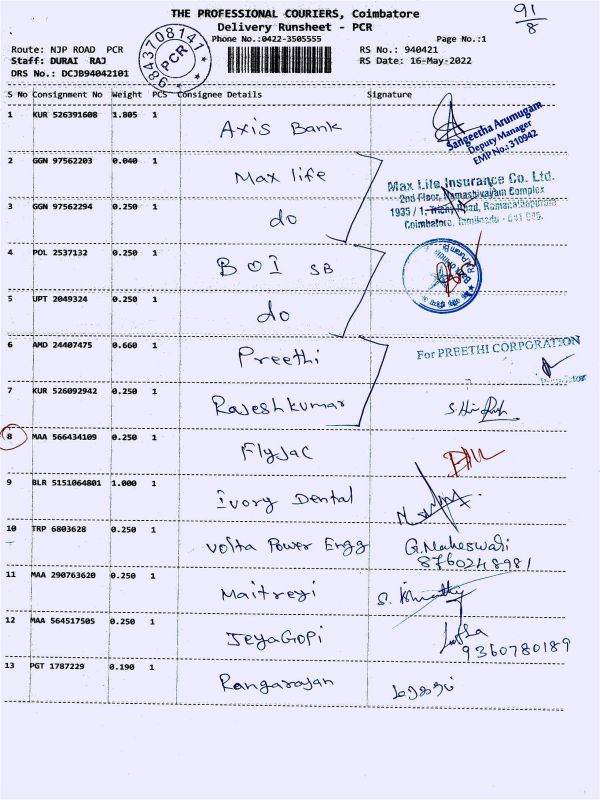 THE PROFESSIONAL COURIERS, Coimbatore
91/8
Delivery Runsheet - PCR
Phone No.:0422-3505555
Page No.:1
Route: NJP ROAD PCR
RS No.: 940421
Staff: DURAI RAJ
RS Date: 16-May-2022
DRS No.: DCJB94042101
9843708141
PCR
S No Consignment No Weight PCS Consignee Details Signature
1 KUR 526391608 1.805 1 Axis Bank
Sangeetha Arumugam
Deputy Manager
EMP No.: 310942
2 GGN 97562203 0.040 1 Max life
Max Life Insurance Co. Ltd.
2nd Floor, Namashivayam Complex
1935 / 1, Trichy Road, Ramanathapuram
Coimbatore, Tamilnadu - 641 045.
3 GGN 97562294 0.250 1 do
4 POL 2537132 0.250 1 BOI SB
5 UPT 2049324 0.250 1 do
6 AMD 24407475 0.660 1 Preethi
For PREETHI CORPORATION
7 KUR 526092942 0.250 1 Rajeshkumar
8 MAA 566434109 0.250 1 Flyjac
9 BLR 5151064801 1.000 1 Ivory Dental
10 TRP 6803628 0.250 1 Volta Power Engg G. Maheswari
8760248981
11 MAA 290763620 0.250 1 Maitreyi
12 MAA 564517505 0.250 1 JeyaGopi
9360780189
13 PGT 1787229 0.190 1 Rangarajan